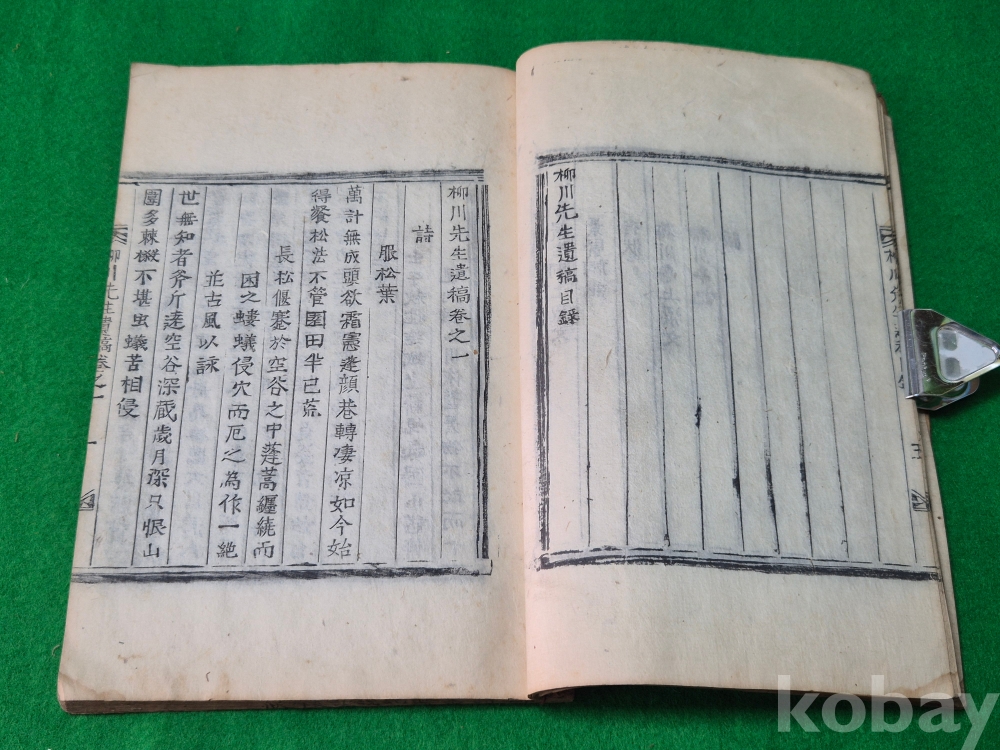 柳川先生遺稿目錄
柳川先生遺稿卷之一
詩
服松葉
萬計無成頭欲霜憲蓬顔巷轉凄凉如今始
得餐松法不管園田半已荒
長松偃蹇於空谷之中蓬蒿纏繞而
困之螻蟻侵穴而厄之為作一絶
並古風以詠
世無知者斧斤違空谷深蔵歲月深只恨山
園多棘樕不堪虫蟻苦相侵
柳川先生遺稿卷之一
一
kobay